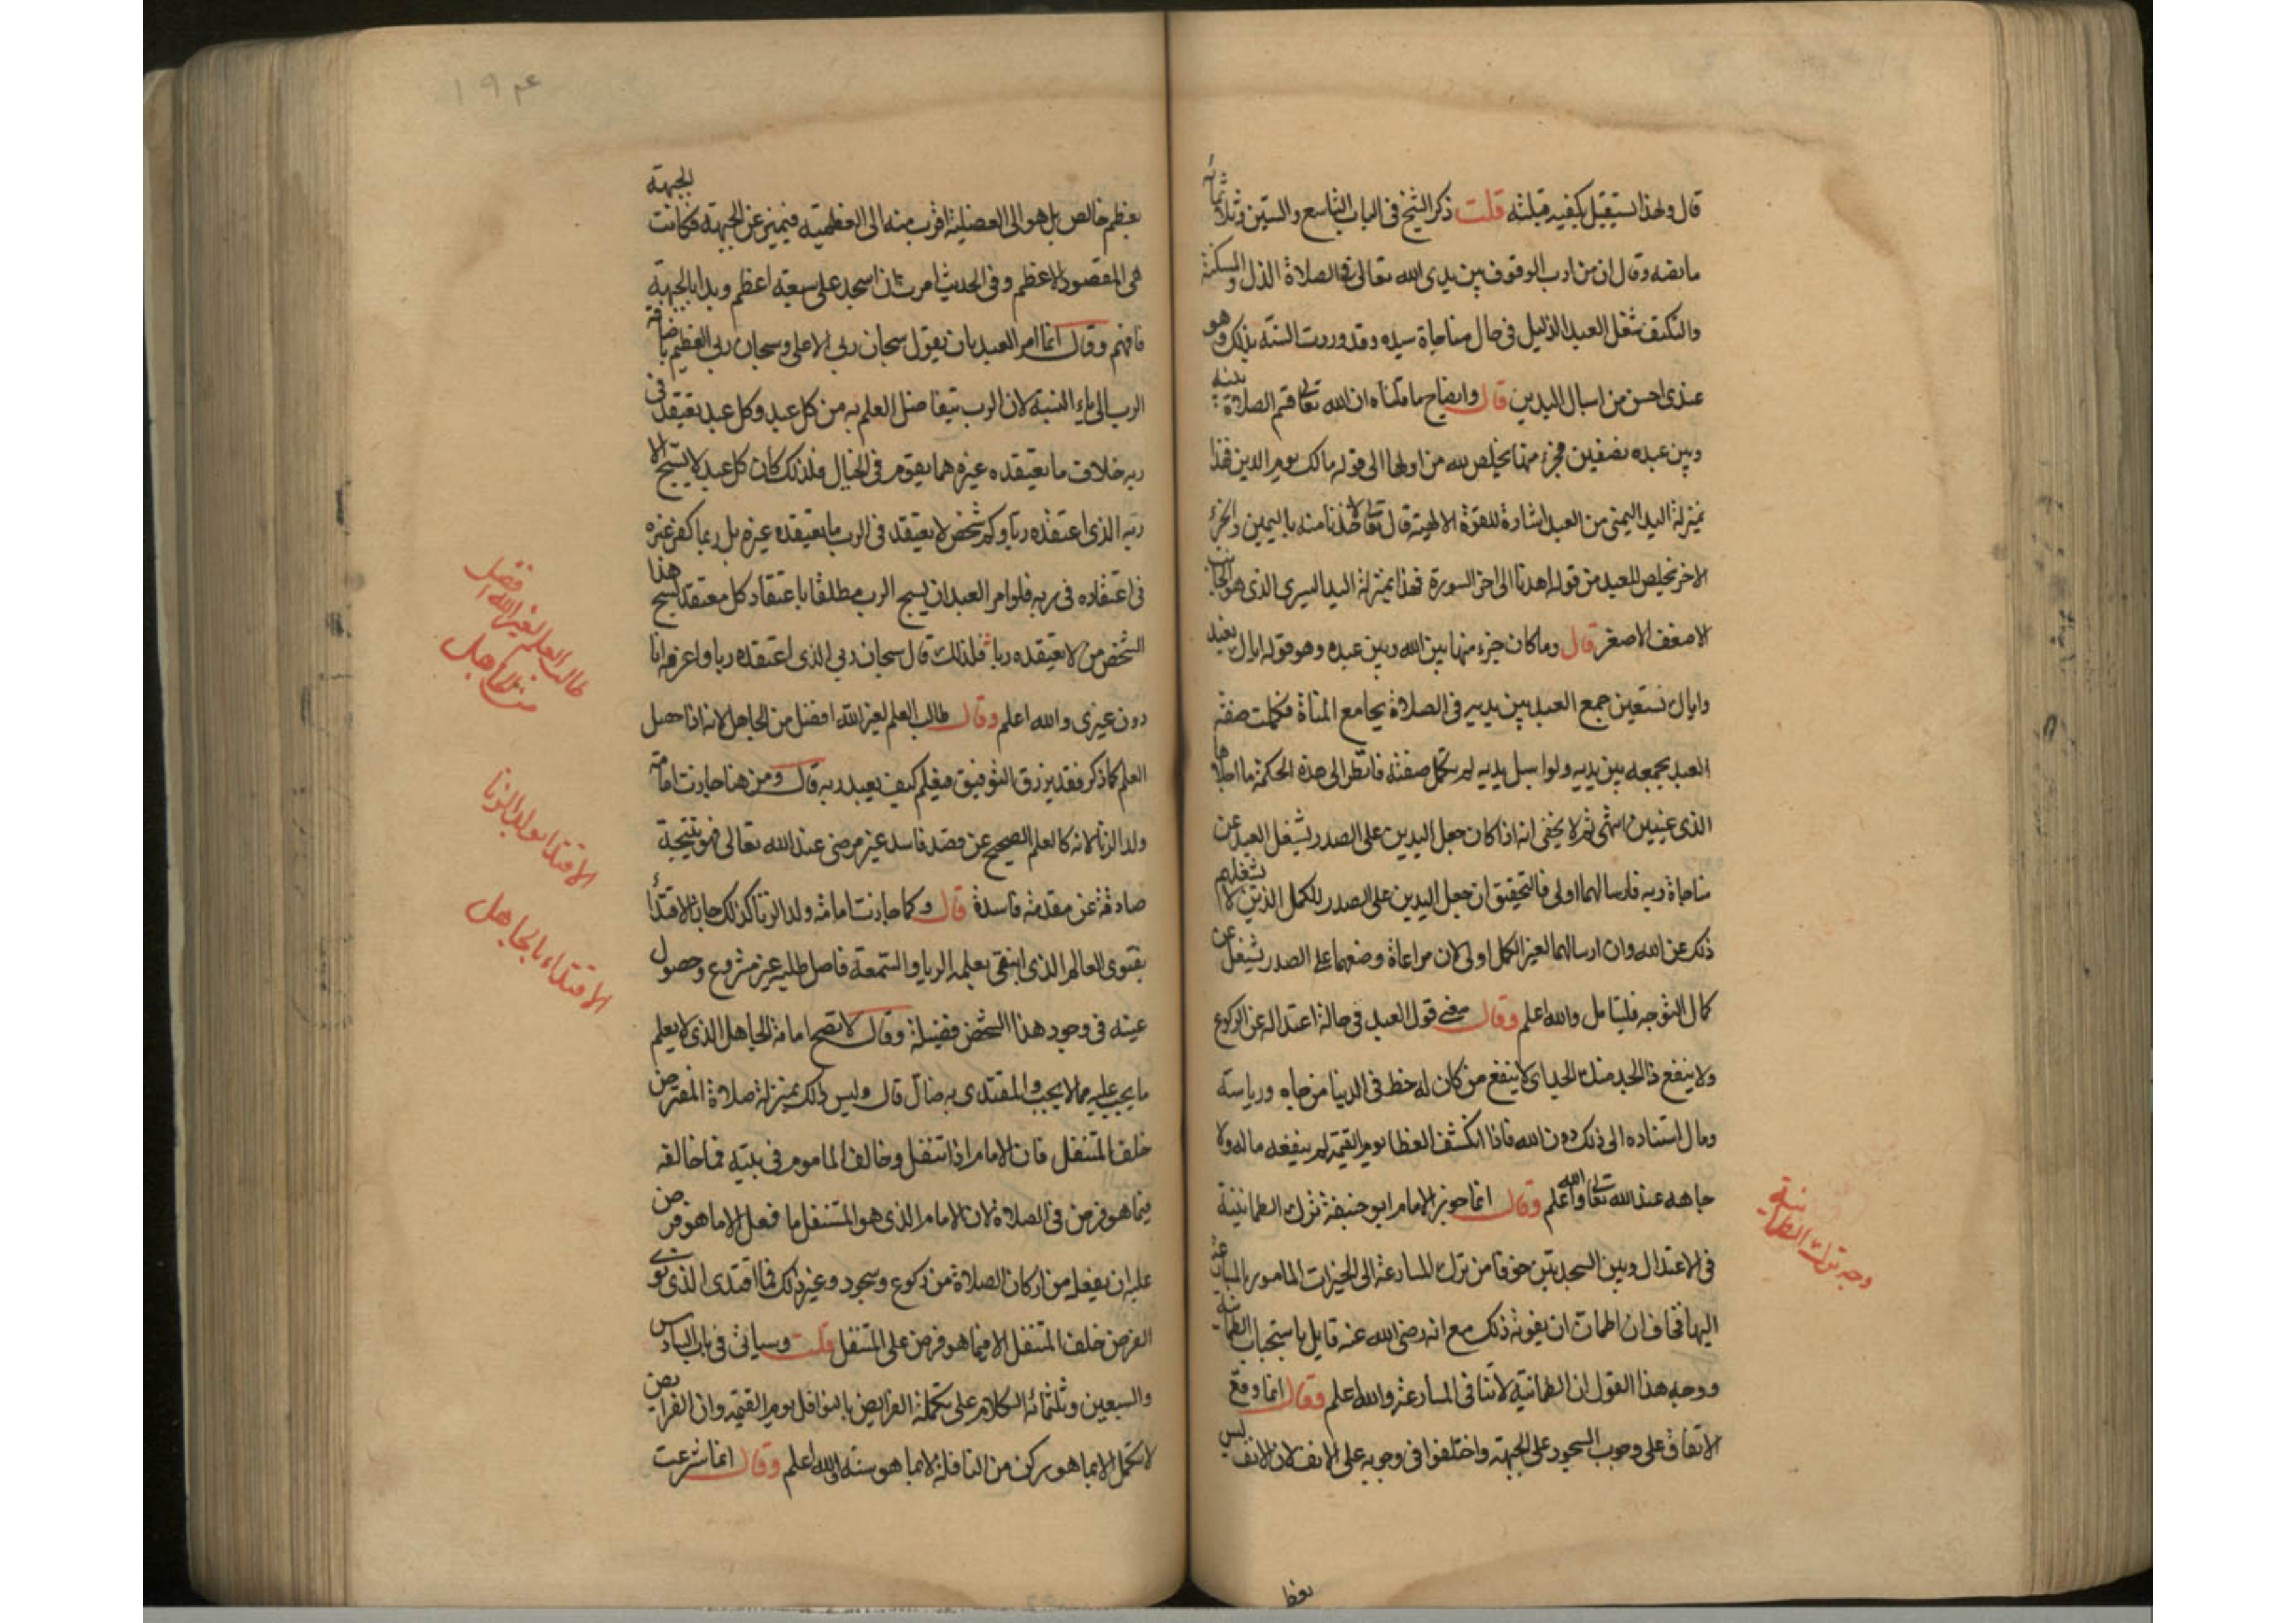 قال ولهذا يستقبل بكفيه قبلته قلت ذكر الشيخ في الباب التاسع والستين وثلاثمائة
ما نصه وقال ان من ادب الوقوف بين يدي الله تعالى في الصلاة الذل والمسكنة
والتكتف شغل العبد الذليل في حال مناجاة سيده وقد وردت السنة بذلك وهو
عندي احسن من اسبال اليدين قال وايضاح ما قلناه ان الله تعالى قسم الصلاة بينه
وبين عبده نصفين فجزء منها يخلص لله من اولها الى قوله مالك يوم الدين فهذا
بمنزلة اليد اليمنى من العبد اشارة للقوة الالهية قال تعالى لاخذنا منه باليمين والجزء
الاخر يخلص للعبد من قوله اهدنا الى اخر السورة فهذا بمنزلة اليد اليسرى الذي هو الجانب
الاضعف الاصغر قال وما كان جزء منها بين الله وبين عبده وهو قوله اياك نعبد
واياك نستعين جمع العبد بين يديه في الصلاة بجامع المناة فكملت صفة
العبد بجمعه بين يديه ولو اسبل يديه لم تكمل صفته فانظر الى هذه الحكمة ما اجلاها
الذي عينين انتهى ثم لا يخفى انه اذا كان جعل اليدين على الصدر يشغل العبد عن
مناجاة ربه فارسالهما اولى فالتحقيق ان جعل اليدين على الصدر للكمل الذين لا يشغلهم
ذلك عن الله وان ارسالهما لغير الكمل اولى لان مراعاة وضعهما على الصدر تشغل عن
كمال التوجه فليتامل والله اعلم وقال معنى قول العبد في حالة اعتداله عن الركوع
ولا ينفع ذا الجد منك الجد اي لا ينفع من كان له حظ في الدنيا من جاه ورياسة
ومال استناده الى ذلك دون الله فاذا انكشف الغطا يوم القيمة لم ينفعه ماله ولا
جاهه عند الله تعالى والله اعلم وقال انما جوز الامام ابو حنيفة ترك الطمانينة
في الاعتدال وبين السجدتين خوفا من ترك المسارعة الى الخيرات المامور بالمبادرة
اليها فخاف ان اطمان ان يفوته ذلك مع انه رضي الله عنه قايل باستحباب الطمانينة
ووجه هذا القول ان الطمانينة لا تنافي المسارعة والله اعلم وقال انما وقع
الاتفاق على وجوب السجود على الجبهة واختلفوا في وجوبه على الانف لان الانف ليس
بعظ
وجه ترك الطمانينة
بعظم خالص بل هو الى العضلية اقرب منه الى العظمية فتميز عن الجبهة فكانت الجبهة
هي المقصود الاعظم وفي الحديث امرت ان اسجد على سبعة اعظم وبدا بالجبهة
فافهم وقال انما امر العبد بان يقول سبحان ربي الاعلى وسبحان ربي العظيم باضافة
الرب الى ياء النسبة لان الرب يتفاضل العلم به من كل عبد وكل عبد يعتقد في
ربه خلاف ما يعتقده غيره مما يقوم في الخيال فلذلك كان كل عبد لا يسبح الا
ربه الذي اعتقده ربا وكم شخص لا يعتقد في الرب ما يعتقده غيره بل ربما كفر غيره
في اعتقاده في ربه فلو امر العبد ان يسبح الرب مطلقا باعتقاد كل معتقد لسبح هذا
الشخص من لا يعتقده ربا فلذلك قال سبحان ربي الذي اعتقده ربا واعرفه انا
دون غيري والله اعلم وقال طالب العلم لغير الله افضل من الجاهل لانه اذا حصل
العلم كما ذكر فقد يرزق التوفيق فيعلم كيف يعبد ربه قال ومن هنا جازت امامة
ولد الزنا لانه كالعلم الصحيح عن قصد فاسد غير مرضي عند الله تعالى فهو نتيجة
صادقة عن مقدمة فاسدة قال وكما جازت امامة ولد الزنا كذلك جاز الاقتدأ
بفتوى العالم الذي ابتغى بعلمه الريا والسمعة فاصل طلبه غير مشروع وحصول
عينه في وجود هذا الشخص فضيلة وقال لا تصح امامة الجاهل الذي لا يعلم
ما يجب عليه مما لا يجب والمقتدي به ضال قال وليس ذلك بمنزلة صلاة المفترض
خلف المتنفل فان الامام اذا تنفل وخالف الماموم في نيته فما خالفه
فيما هو فرض في الصلاة لان الامام الذي هو المتنفل ما فعل الا ما هو فرض
عليه ان يفعله من اركان الصلاة من ركوع وسجود وغير ذلك فما اقتدى الذي نوى
الفرض خلف المتنفل الا فيما هو فرض على المتنفل قلت وسياتي في باب السادس
والسبعين وثلثمائة الكلام على تكملة الفرايض بالنوافل يوم القيمة وان الفرايض
لا تكمل الا بما هو ركن من النافلة لا بما هو سنة والله اعلم وقال انما شرعت
طالب العلم لغير الله افضل من الجاهل
الاقتدا بولد الزنا
الاقتداء بالجاهل